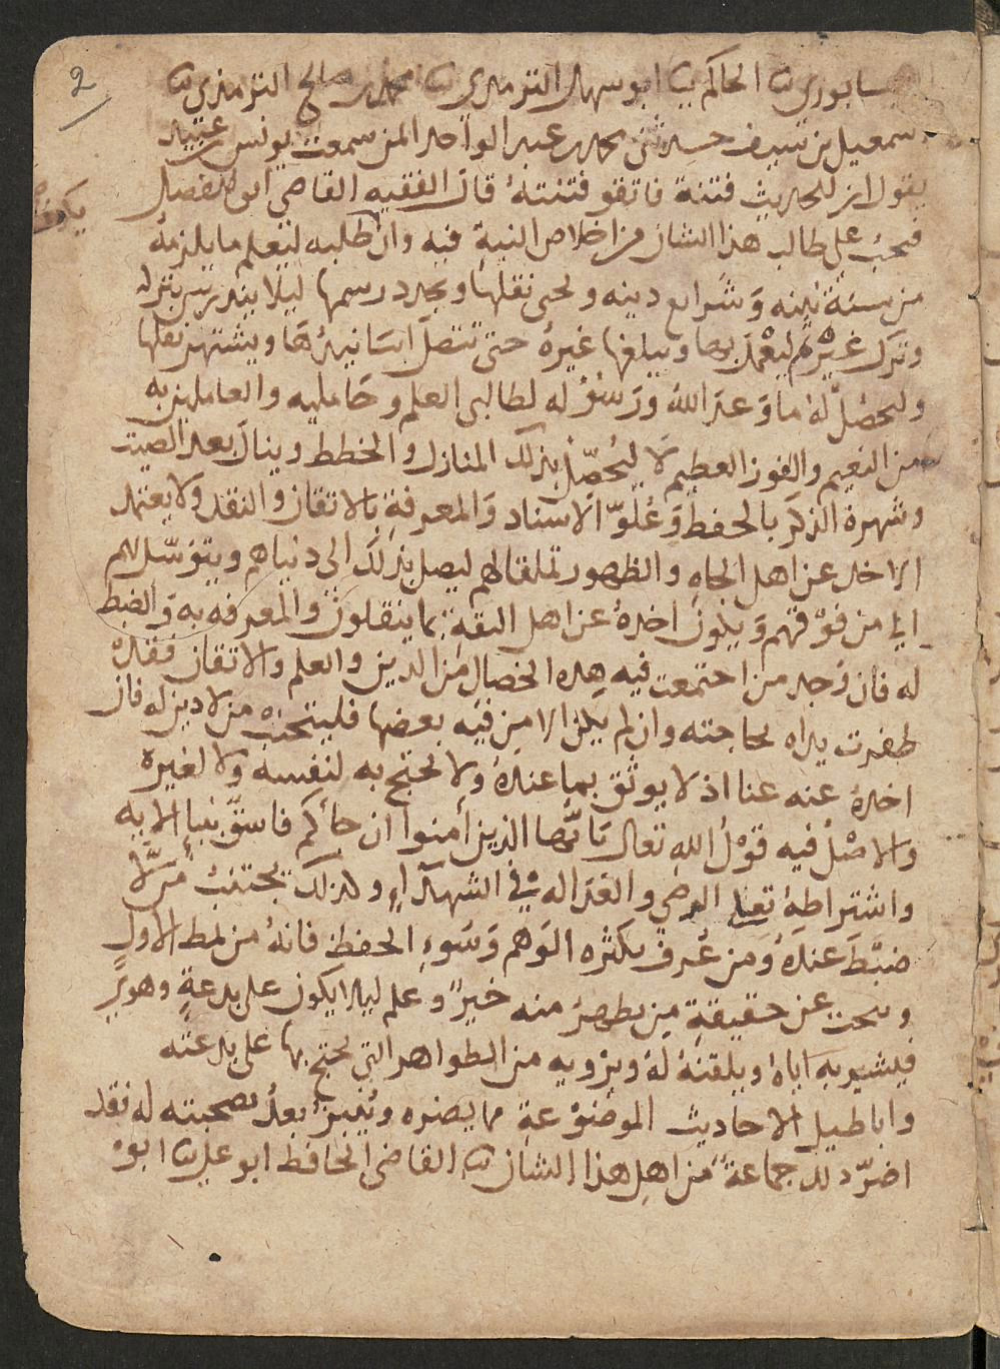 2
سابوري نا الحاكم نا ابو سهل الترمذي نا محمد بن صالح الترمذي نا
سمعيل بن سيف حدثني محمد بن عبد الواحد المزني سمعت يونس بن عبيد
يقول ان للحديث فتنة فاتقوا فتنته قال الفقيه القاضي ابو الفضل
فيجب على طالب هذا الشان من اخلاص النية فيه وان طلبه ليتعلم ما يلزمه
من سنة نبيه وشرايع دينه ونقلها ويجدد رسمها ليلا يندرس بتركه
وترك غيره لها ليعمل بها ويبلغها غيره حتى تتصل اسانيدها ويشتهر نقلها
وليحصل له ما وعد الله ورسوله لطالبي العلم وحامليه والعاملين به
من النعيم والفوز العظيم لا ليحصل بذلك المنازل والخطط وينال بعد الصيت
وشهرة الذكر بالحفظ وعلو الاسناد والمعرفة بالاتقان والنقد ولا يعتمد
الاخذ عن اهل الجاه والظهور تملقا لهم ليصل بذلك الى دنياهم ويتوسل بهم
الى من فوقهم ويكون اخذه عن اهل الثقة بما ينقلون والمعرفه به والضبط
له فان وجد من اجتمعت فيه هذه الخصال من الدين والعلم والاتقان فقد
ظفرت يداه بحاجته وان لم يكن الا من فيه بعضها فليتجنب من لا دين له فان
اخذه عنه عنا اذ لا يوثق بما عنده ولا يحتج به لنفسه ولا لغيره
والاصل فيه قول الله تعالى يايها الذين امنوا ان جاكم فاسق بنبا الايه
واشتراطه تعالى الرضي والعداله في الشهداء وكذلك يجتنب من لا
ضبط عنده ومن عرف بكثره الوهم وسوء الحفظ فانه من نمط الاول
ويبحث عن حقيقة من يظهر منه خير وعلم ليلا يكون على بدعة وهو يري
فيشيد به اياه ويلقنه له ويرويه من الظواهر التي يحتج بها على بدعته
واباطيل الاحاديث الموضوعة ما يضره وينبز بعد بصحبته له فقد
اضر ذلك جماعة من اهل هذا الشان نا القاضي الحافظ ابو علي نا ابو